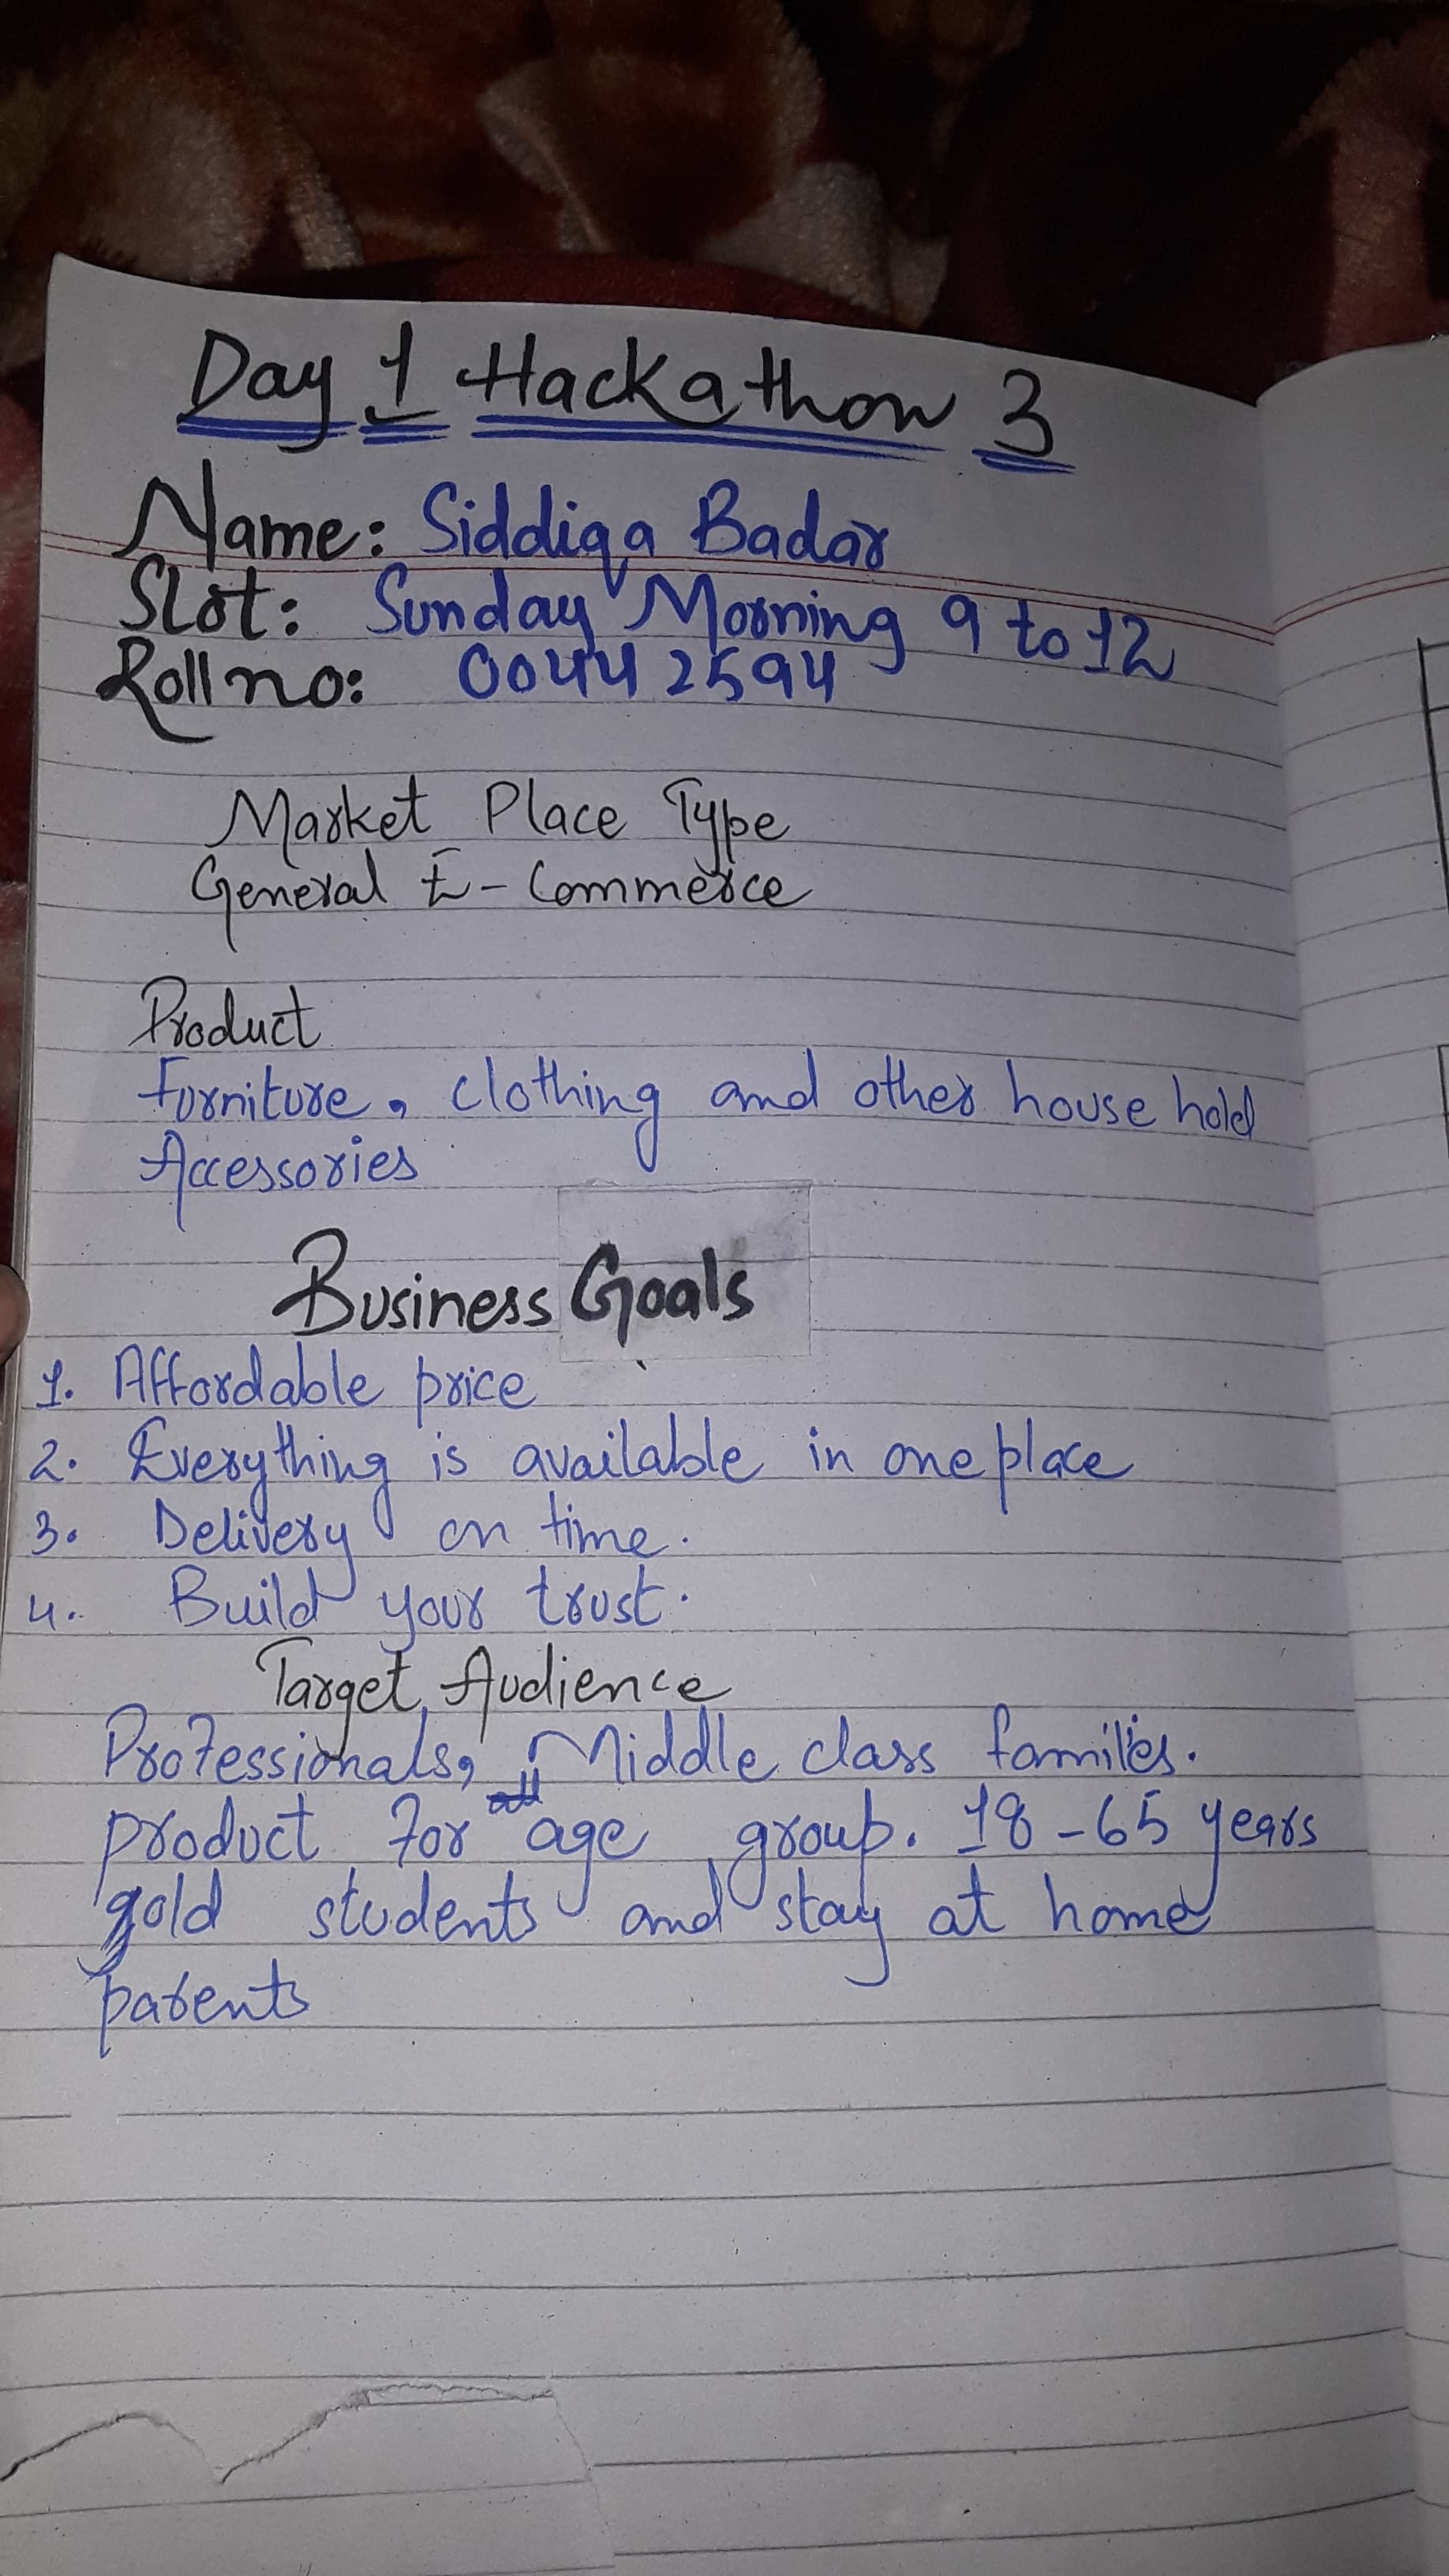 Day 1 Hackathon 3
Name: Siddiqa Badar
Slot: Sunday Morning 9 to 12
Roll no: 00442594
Market Place Type
General E-Commerce
Product
Furniture, clothing and other house hold
Accessories
Business Goals
1. Affordable price
2. Everything is available in one place
3. Delivery on time.
4. Build your trust.
Target Audience
Professionals, Middle class families.
product for age group. 18-65 years
old students and stay at home
parents